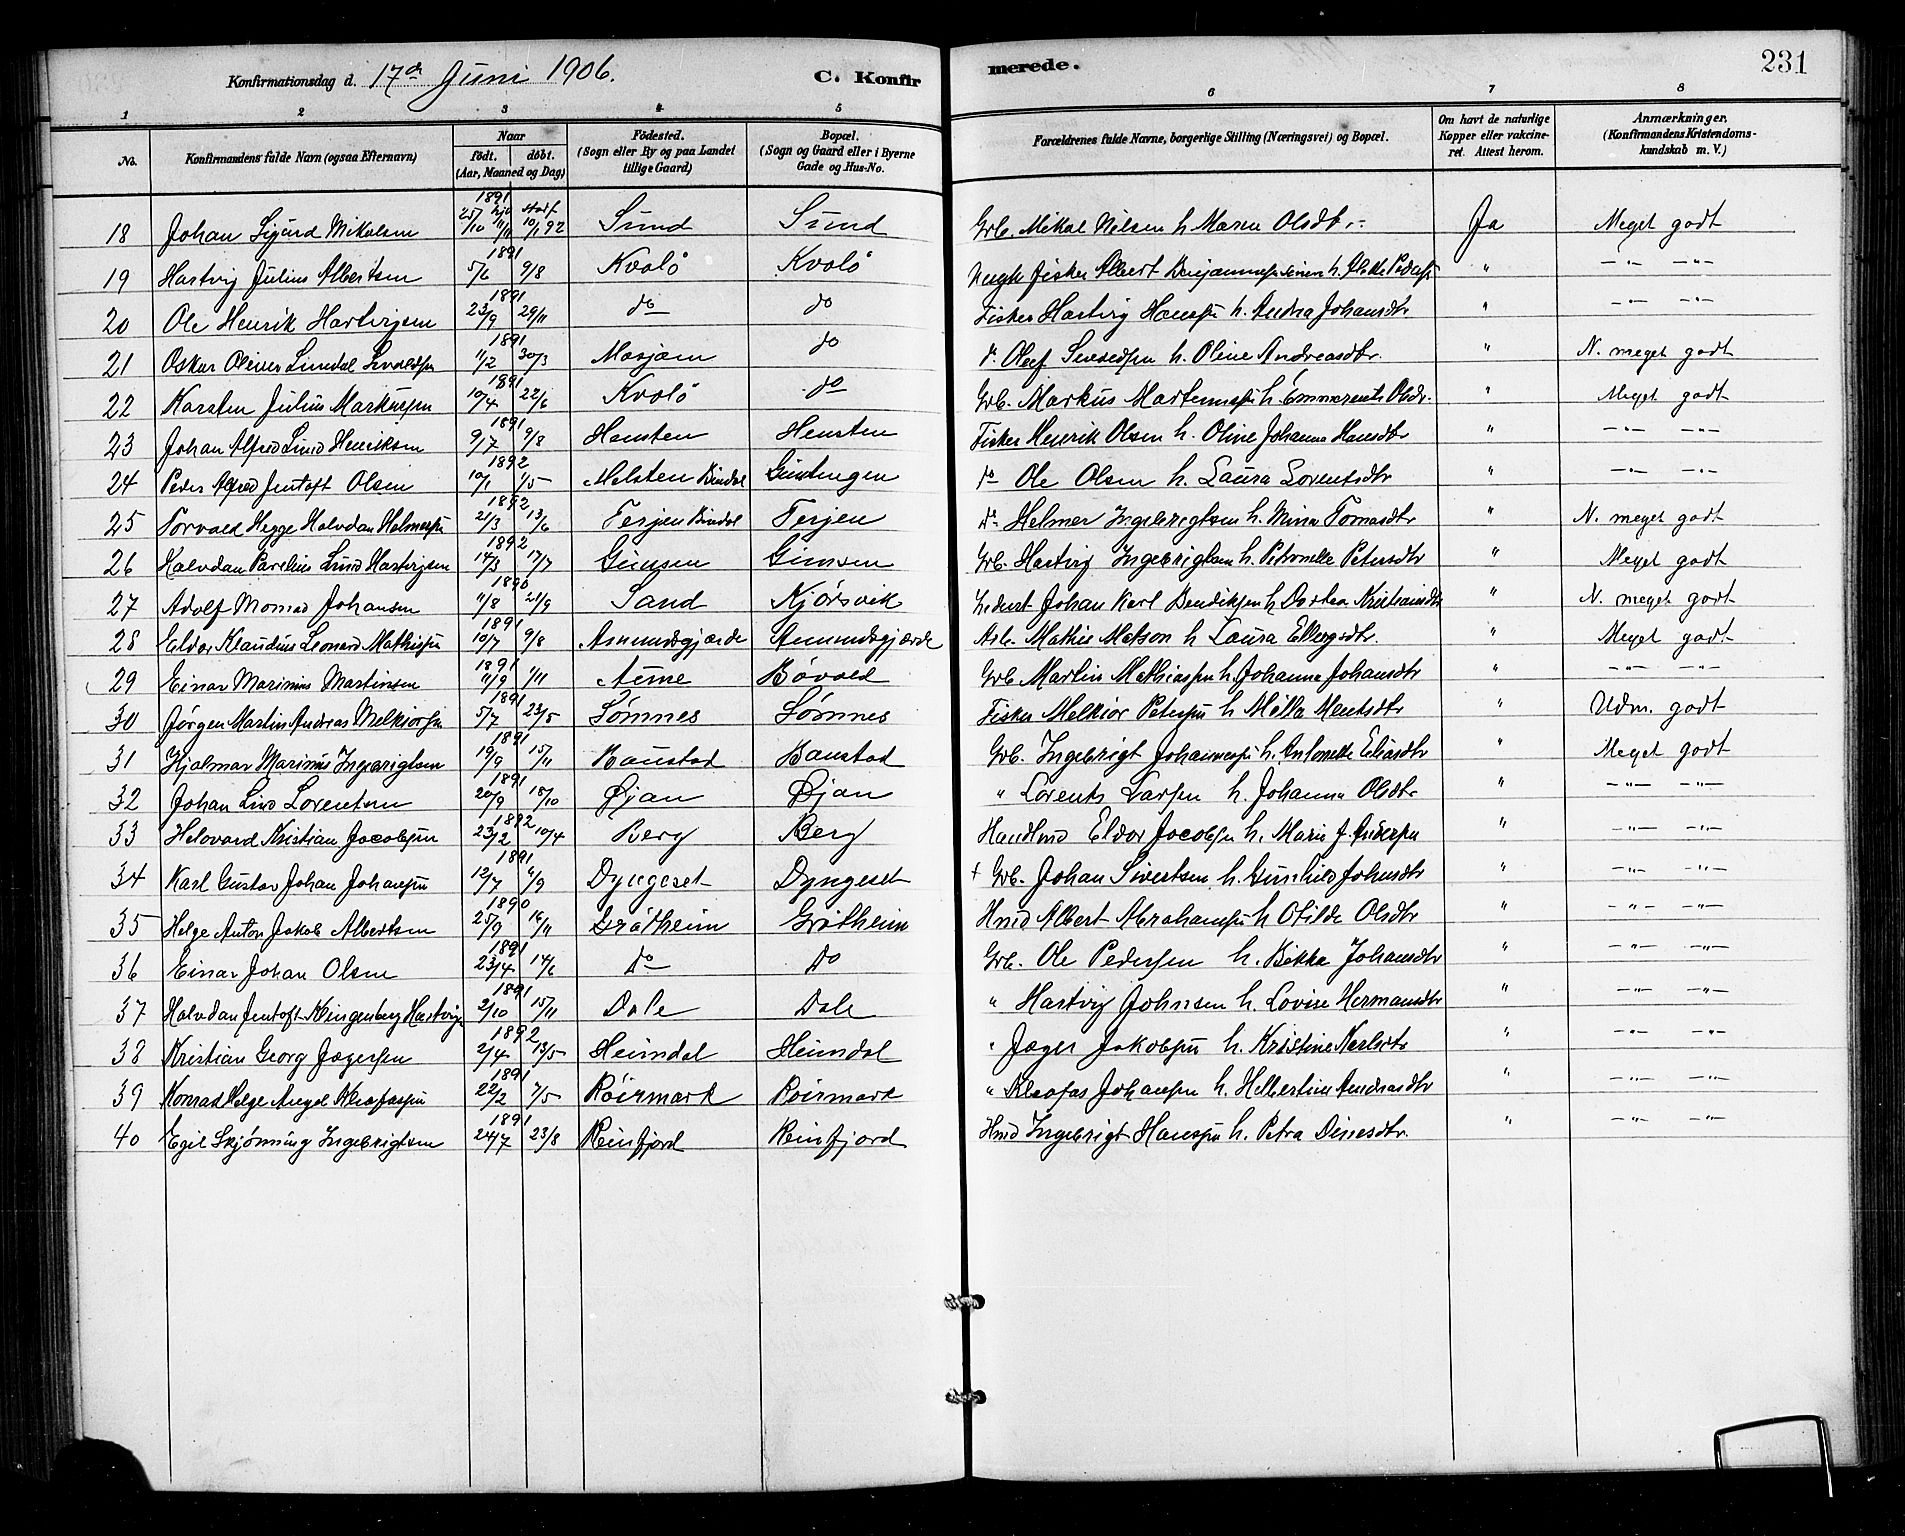 Konfirmationsdag d. 17de Juni 1906. C. Konfirmerede. 231
1 2 3 4 5 6 7 8
No. Konfirmandens fulde Navn (ogsaa Efternavn) Naar födt. döbt. (Aar, Maaned og Dag) Födested. (Sogn eller By og paa Landet tillige Gaard) Bopæl. (Sogn og Gaard eller i Byerne Gade og Hus-No. Forældrenes fulde Navne, borgerlige Stilling (Næringsvei) og Bopæl. Om havt de naturlige Kopper eller vakcineret. Attest herom. Anmærkninger. (Konfirmandens Kristendomskundskab m. V.)
18 Johan Sigurd Mikalsen 1891 25/10 11/11 10/1 92 Sund Sund Grb. Mikal Nilsen h. Maren Olsdtr. Ja Meget godt
19 Hartvig Julius Albertsen 1891 5/6 9/8 Kvalö Kvalö Fisker Albert h. " –"– –"–
20 Ole Henrik Hartvigsen 1891 23/9 29/11 do do Fisker Hartvig Hanssen h. Andrea Johansdtr " –"– –"–
21 Oskar Oliver 1891 11/2 30/3 Mosjøen do do h. Oline Andreasdtr. " N. meget godt
22 Karsten Julius Markussen 1891 10/4 22/6 Kvalö do Grb. Markus Martenussen h. Emmerents Olsdr. " Meget godt
23 Johan Alfred Lund Henriksen 1891 9/7 9/8 Honsten Honsten Fisker Henrik Olsen h. Oline Johanna Hansdtr " –"– –"–
24 Peder Alfred Jentoft Olsen 1892 10/1 1/5 Bindal do Ole Olsen h. Laura Lorentsdtr " –"– –"–
25 Torvald Hegge Halvdan Helmersen 1892 21/3 13/6 Terjen Bindal Terjen do Helmer Ingebrigtsen h. Mina Tomasdtr " N. meget godt
26 Halvdan Parelius Lund Hartvigsen 1892 14/3 17/7 Gimsen Gimsen Grb. Hartvig Ingebrigtsen h. Petronelle Petersdtr " Meget godt
27 Adolf Monrad Johansen 1890 11/8 21/9 Sand Kjørsvik Johan Karl Bendiksen h. Dortea Kristiansdtr " N. meget godt
28 Eldor Klaudius Leonard Mathissen 1891 10/7 9/8 Amundsgjærde Amundsgjærde Arb. Mathis Matson h. Laura Ellingsdtr. " Meget godt
29 Einar Marinius Martinsen 1891 11/9 1/11 Aune Bøvold Grb Martin Mathiassen h. Johanna Johansdtr " –"– –"–
30 Jørgen Martin Andreas Melkiorsen 1891 5/7 23/5 Sømnes Sømnes Fisker Melkior Petersen h. Milla Mentsdtr " Udm. godt
31 Hjalmar Marinus Ingebrigtsen 1891 19/9 15/11 Baustad Baustad Grb. Ingebrigt Johannessen h. Antonette Eliasdtr " Meget godt
32 Johan Lind Lorentsen 1891 20/9 18/10 Øjan Øjan " Lorents Larsen h. Johanna Olsdtr " –"– –"–
33 Helvard Kristian Jacobsen 1892 23/2 10/4 Berg Berg Handlmd Eldor Jacobsen h. Marie J. Andersen " –"– –"–
34 Karl Gustav Johan Johansen 1891 12/7 6/9 Dyngeset Dyngeset † Grb. Johan Sivertsen h. Gunhild Johnsdtr " –"– –"–
35 Helge Anton Jakob Albertsen 1890 25/9 16/11 Gråtheim Gråtheim Hmd Albert Abrahamsen h. Otilde Olsdtr " –"– –"–
36 Einar Johan Olsen 1891 23/4 14/6 Do Do Grb. Ole Pedersen h. Bikka Johansdtr " –"– –"–
37 Halvdan Jentoft Klingenberg Hartvigs 1891 2/10 15/11 Dale Dale " Hartvig Johnsen h. Lovise Hermansdtr " –"– –"–
38 Kristian Georg Jægersen 1892 2/4 13/5 Heimdal Heimdal " Jæger Jakobsen h. Kristine Karlsdtr " –"– –"–
39 Konrad Helge Angel Kleofassen 1891 22/2 7/5 Röirmark Röirmark " Kleofas Johansen h. Helbertine Andreasdtr " –"– –"–
40 Egil Skjönning Ingebrigtsen 1891 24/7 23/8 Reinfjord Reinfjord Hmd Ingebrigt Hanssen h. Petra Dinesdtr. " –"– –"–